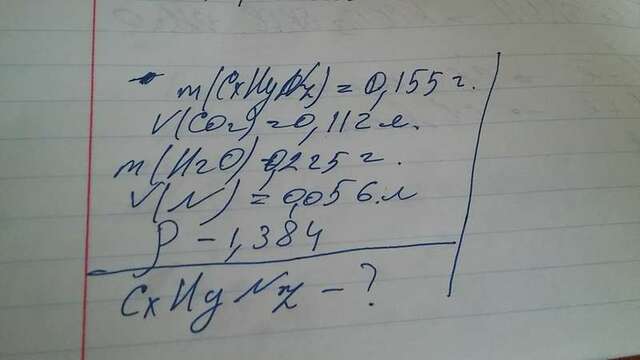 m(CxHyNz) = 0,155 г.
V(CO2) = 0,112 л.
m(H2O) 0,225 г.
V(N) = 0,056 л
D - 1,384
CxHyNz - ?